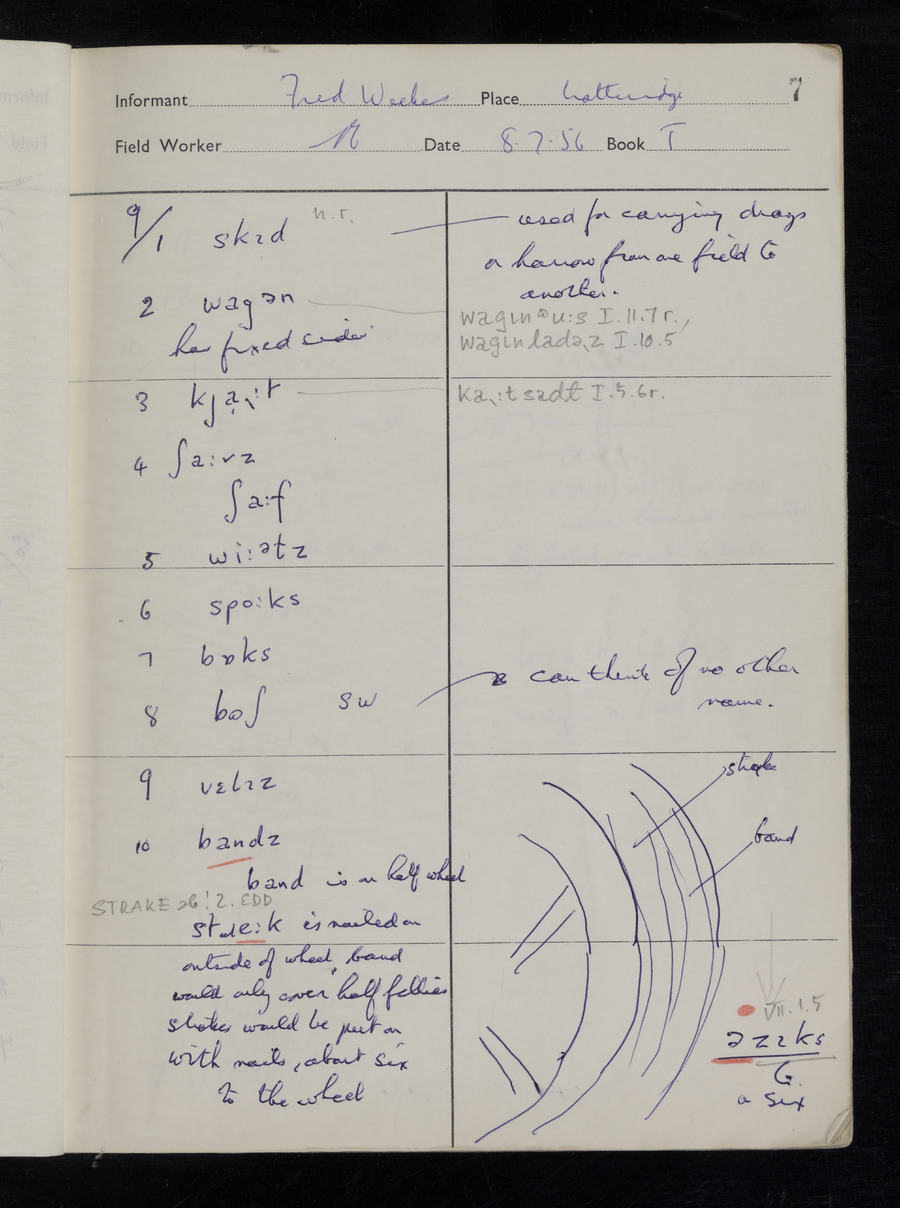 Informant Fred Weekes Place Latteridge 7
Field Worker Date 8.7.56 Book T
9/1 skɪd n.r.
used for carrying drags
or harrow from one field to
another.
2 wagən
has fixed sides
wagɪn I.11.7r.,
wagɪn I.10.5
3
I.5.6r.
4 ʃaːvz
ʃaːf
5 wiːətz
6 spoːks
7 bɒks
8 boʃ sw
can think of no other
name.
9 vɛlɪz
10 bandz
band is on half wheel
STRAKE sb! 2. EDD
is nailed on
outside of wheel, band
would only cover half fellies
strakes would be put on
with nails, about six
to the wheel
strake
band
VII.1.5
ə zɪks
G.
a six